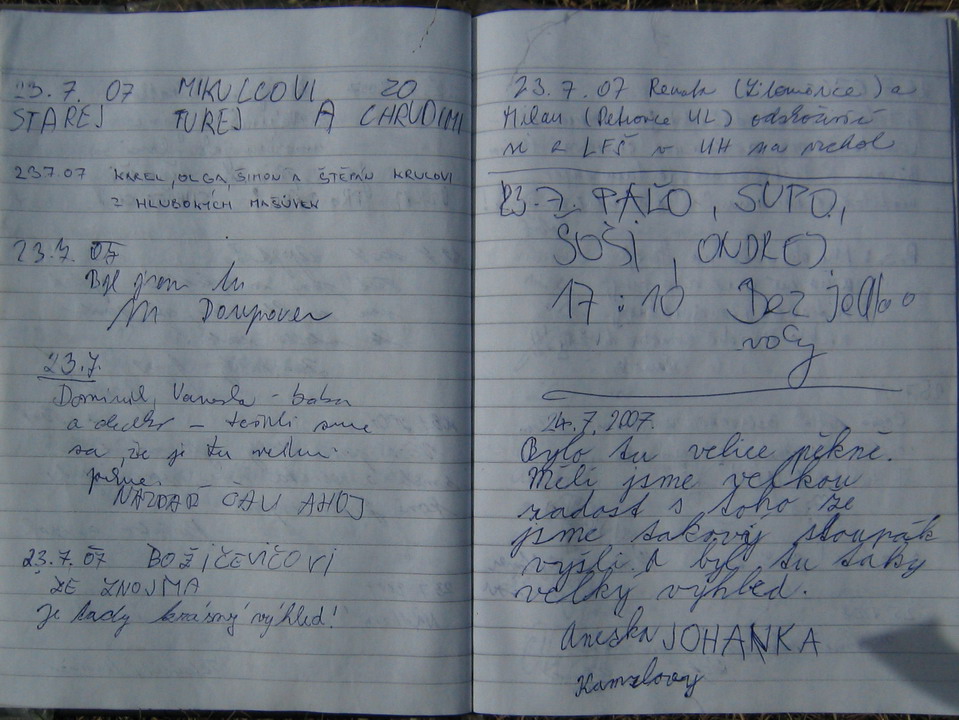 23.7.07 MIKULCOVI ZO
STAREJ TUREJ A CHRUDIMI
23.7.07 KAREL, OLGA, ŠIMON A ŠTĚPÁN KRULOVI
Z HLUBOKÝCH MAŠŮVEK
23.7.07
Byl jsem tu
23.7.
Dominik, - baba
a dedko - tešili sme
sa, že je tu
NAZDAR ČAU AHOJ
23.7.07 BOŽIČEVIČOVI
ZE ZNOJMA
Je tady krásný výhled!
23.7.07 Renata (Litoměřice) a
Milan (Petrovice UL) odskočili
si z LFŠ v UH na vrchol
23.7. PAĽO, SUPO,
ŠOŠI, ONDREJ
17:10 Bez jedla o
vody
24.7.2007.
Bylo tu velice pěkně.
Měli jsme velkou
radost s toho že
jsme takový stoupák
vyšli. A byl tu taky
velký výhled.
Anežka JOHANKA